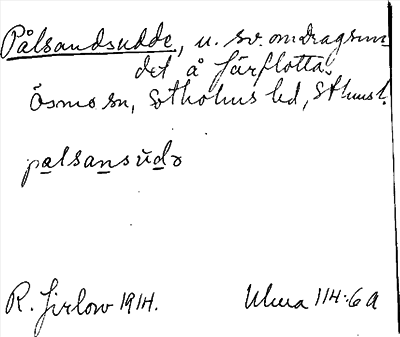 Pålsandsudde, u. sv. om dragsun-
det å Järflotta.
Ösmo sn, Sotholms hd, Sthms l.
palsansŭdə
R. Jirlow 1914. Ulma 114:6 A